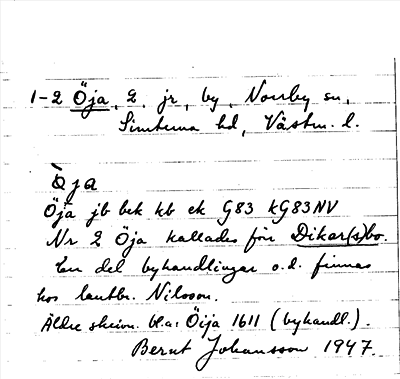 1-2 Öja, 2, jr, by, Norrby sn,
Simtuna hd, Västm. l.
Òja
Öja jb bek kb ek G83 kG83NV
Nr 2 Öja kallades för Dikar(s)bo.
En del byhandlingar o.d. finnas
hos lantbr. Nilsson.
Äldre skrivn. bl.a: Öija 1611 (byhandl.).
Bernt Johansson 1947.